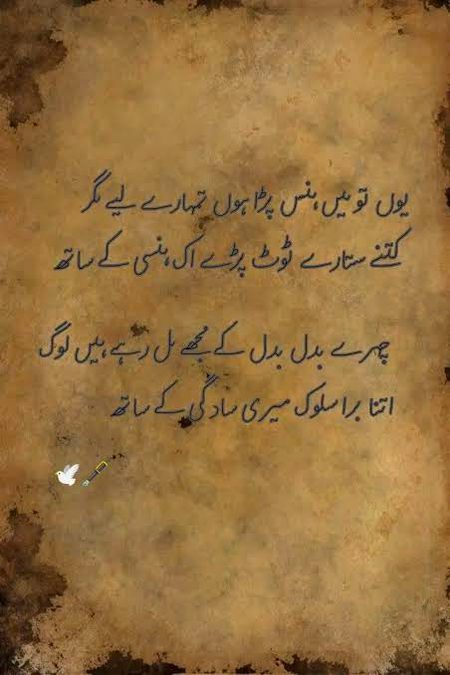 یوں تو میں ہنس پڑا ہوں تمہارے لیے مگر
کتنے ستارے ٹوٹ پڑے اک ہنسی کے ساتھ
چہرے بدل بدل کے مجھے مل رہے ہیں لوگ
اتنا برا سلوک میری سادگی کے ساتھ